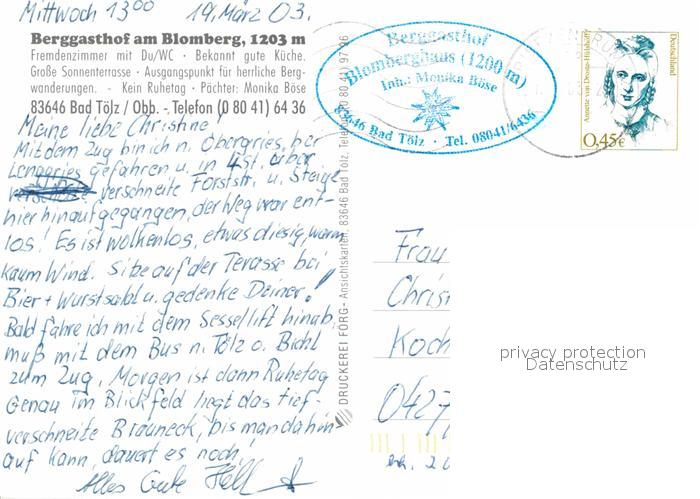 Mittwoch 13⁰⁰ 19. März 03.
Berggasthof am Blomberg, 1203 m
Fremdenzimmer mit Du/WC · Bekannt gute Küche.
Große Sonnenterrasse · Ausgangspunkt für herrliche Berg-
wanderungen. - Kein Ruhetag · Pächter: Monika Böse
83646 Bad Tölz / Obb. - Telefon (0 80 41) 64 36
Meine liebe Christine!
Mit dem Zug bin ich n. Obergries, bzw
Lenggries gefahren u. in 4St. über
verschneite Forststr. u. Steige
hier hinaufgegangen, der Weg war end-
los! Es ist wolkenlos, etwas diesig, warm
kaum Wind. Sitze auf der Terasse bei
Bier + Wurstsalat u. gedenke Deiner!
Bald fahre ich mit dem Sessellift hinab,
muß mit dem Bus n. Tölz o. Bichl
zum Zug. Morgen ist dann Ruhetag
Genau im Blickfeld liegt das tief-
verschneite Brauneck, bis man dahin
auf kann, dauert es noch!
Alles Gute
DRUCKEREI FÖRG - Ansichtskarten, 83646 Bad Tölz, Telefon (0 80 41)
Berggasthof
Blomberghaus (1200 m)
Inh.: Monika Böse
83646 Bad Tölz · Tel. 08041/6436
Annette von Droste-Hülshoff
Deutschland
0,45€
Frau
Christ
Koch
0427
privacy protection
Datenschutz